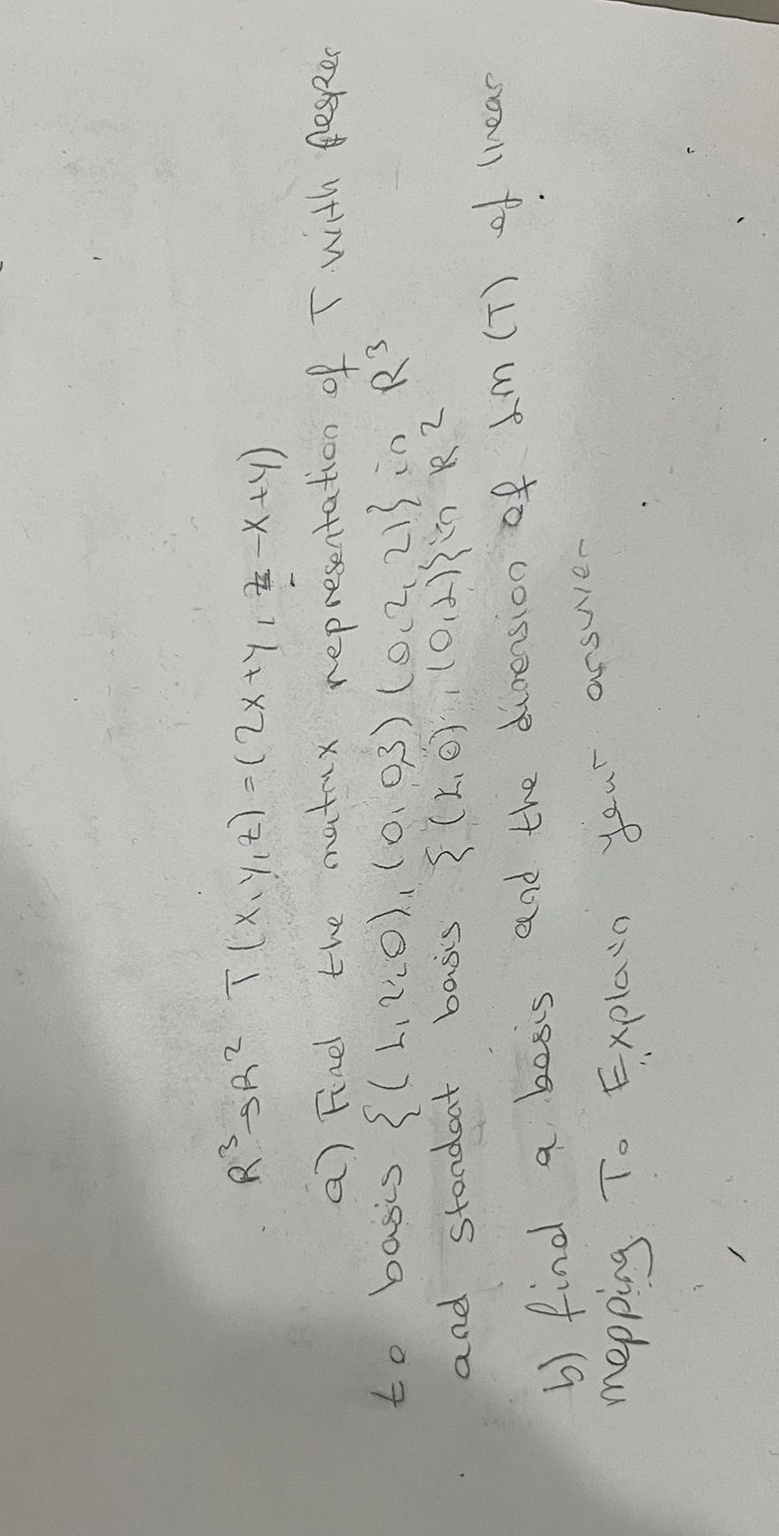 R³→R² T(x,y,z)=(2x+y, z-x+y)
a) Find the matrix representation of T with respec
to basis {(1,2,0),(0,0,3)(0,2,2)} in R³
and standart basis {(1,0),(0,1)} in R²
b) find a basis and the dimension of Im(T) of linear
mapping T. Explain your answer